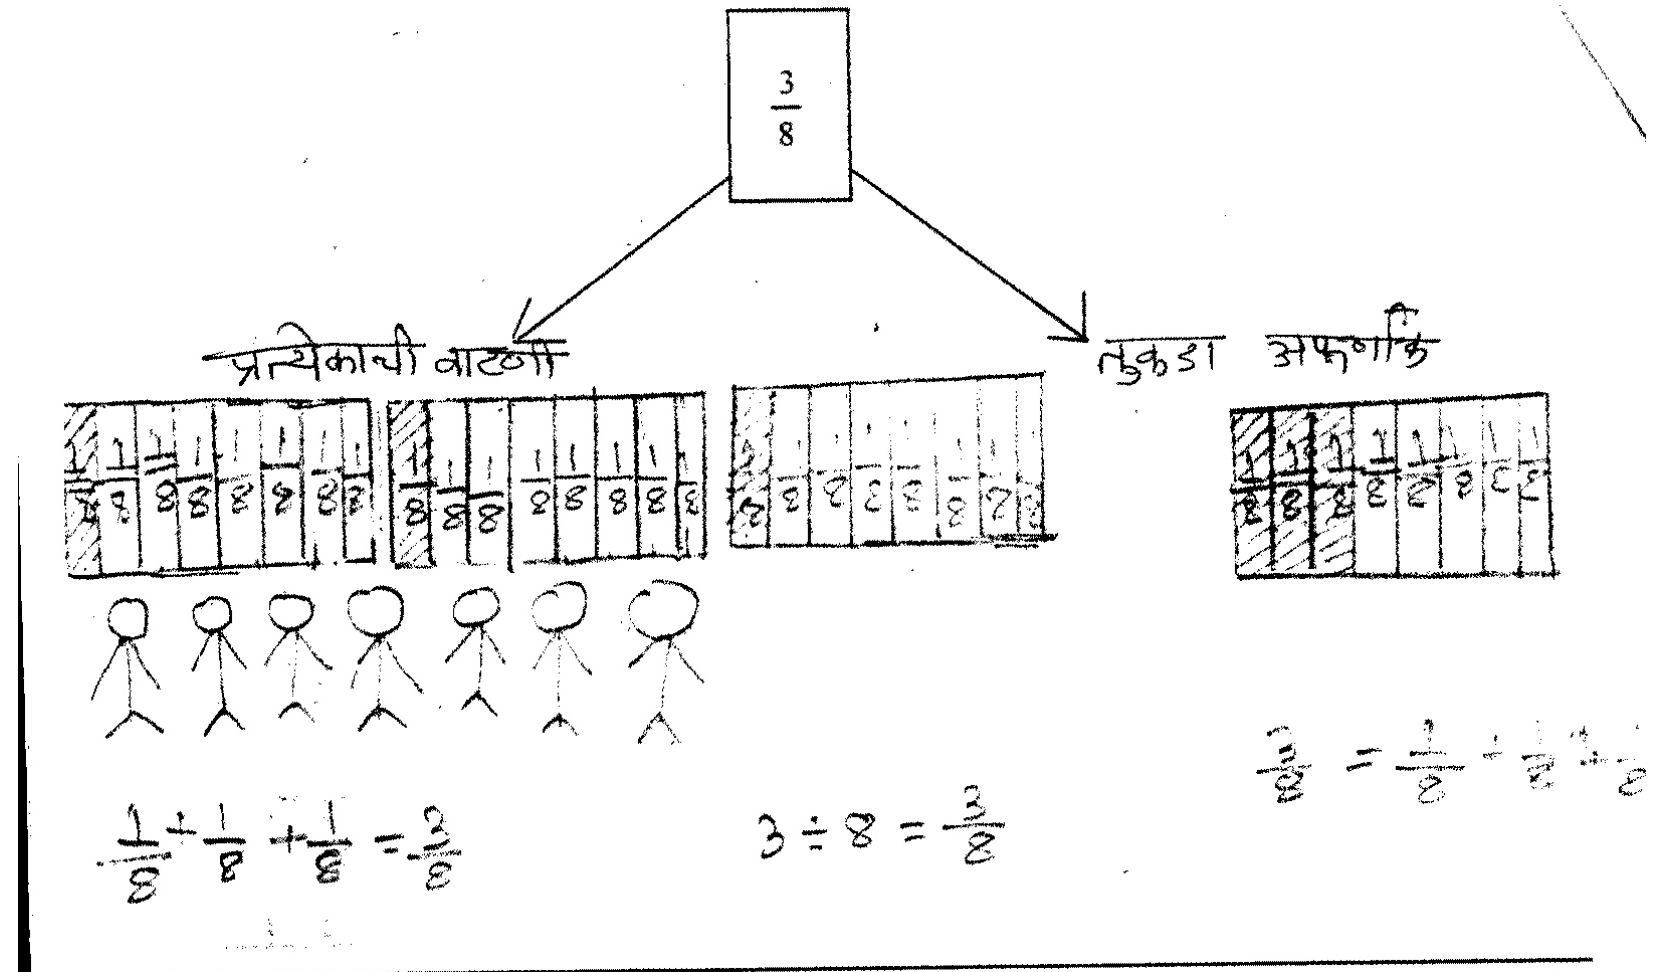 3/8
प्रत्येकाची वाटणी
तुकडा अपूर्णांक
1/8 1/8 1/8 1/8 1/8 1/8 1/8 1/8
1/8 1/8 1/8 1/8 1/8 1/8 1/8 1/8
1/8 1/8 1/8 1/8 1/8 1/8 1/8 1/8
1/8 1/8 1/8 1/8 1/8 1/8 1/8 1/8
1/8 + 1/8 + 1/8 = 3/8
3 ÷ 8 = 3/8
3/8 = 1/8 + 1/8 + 1/8